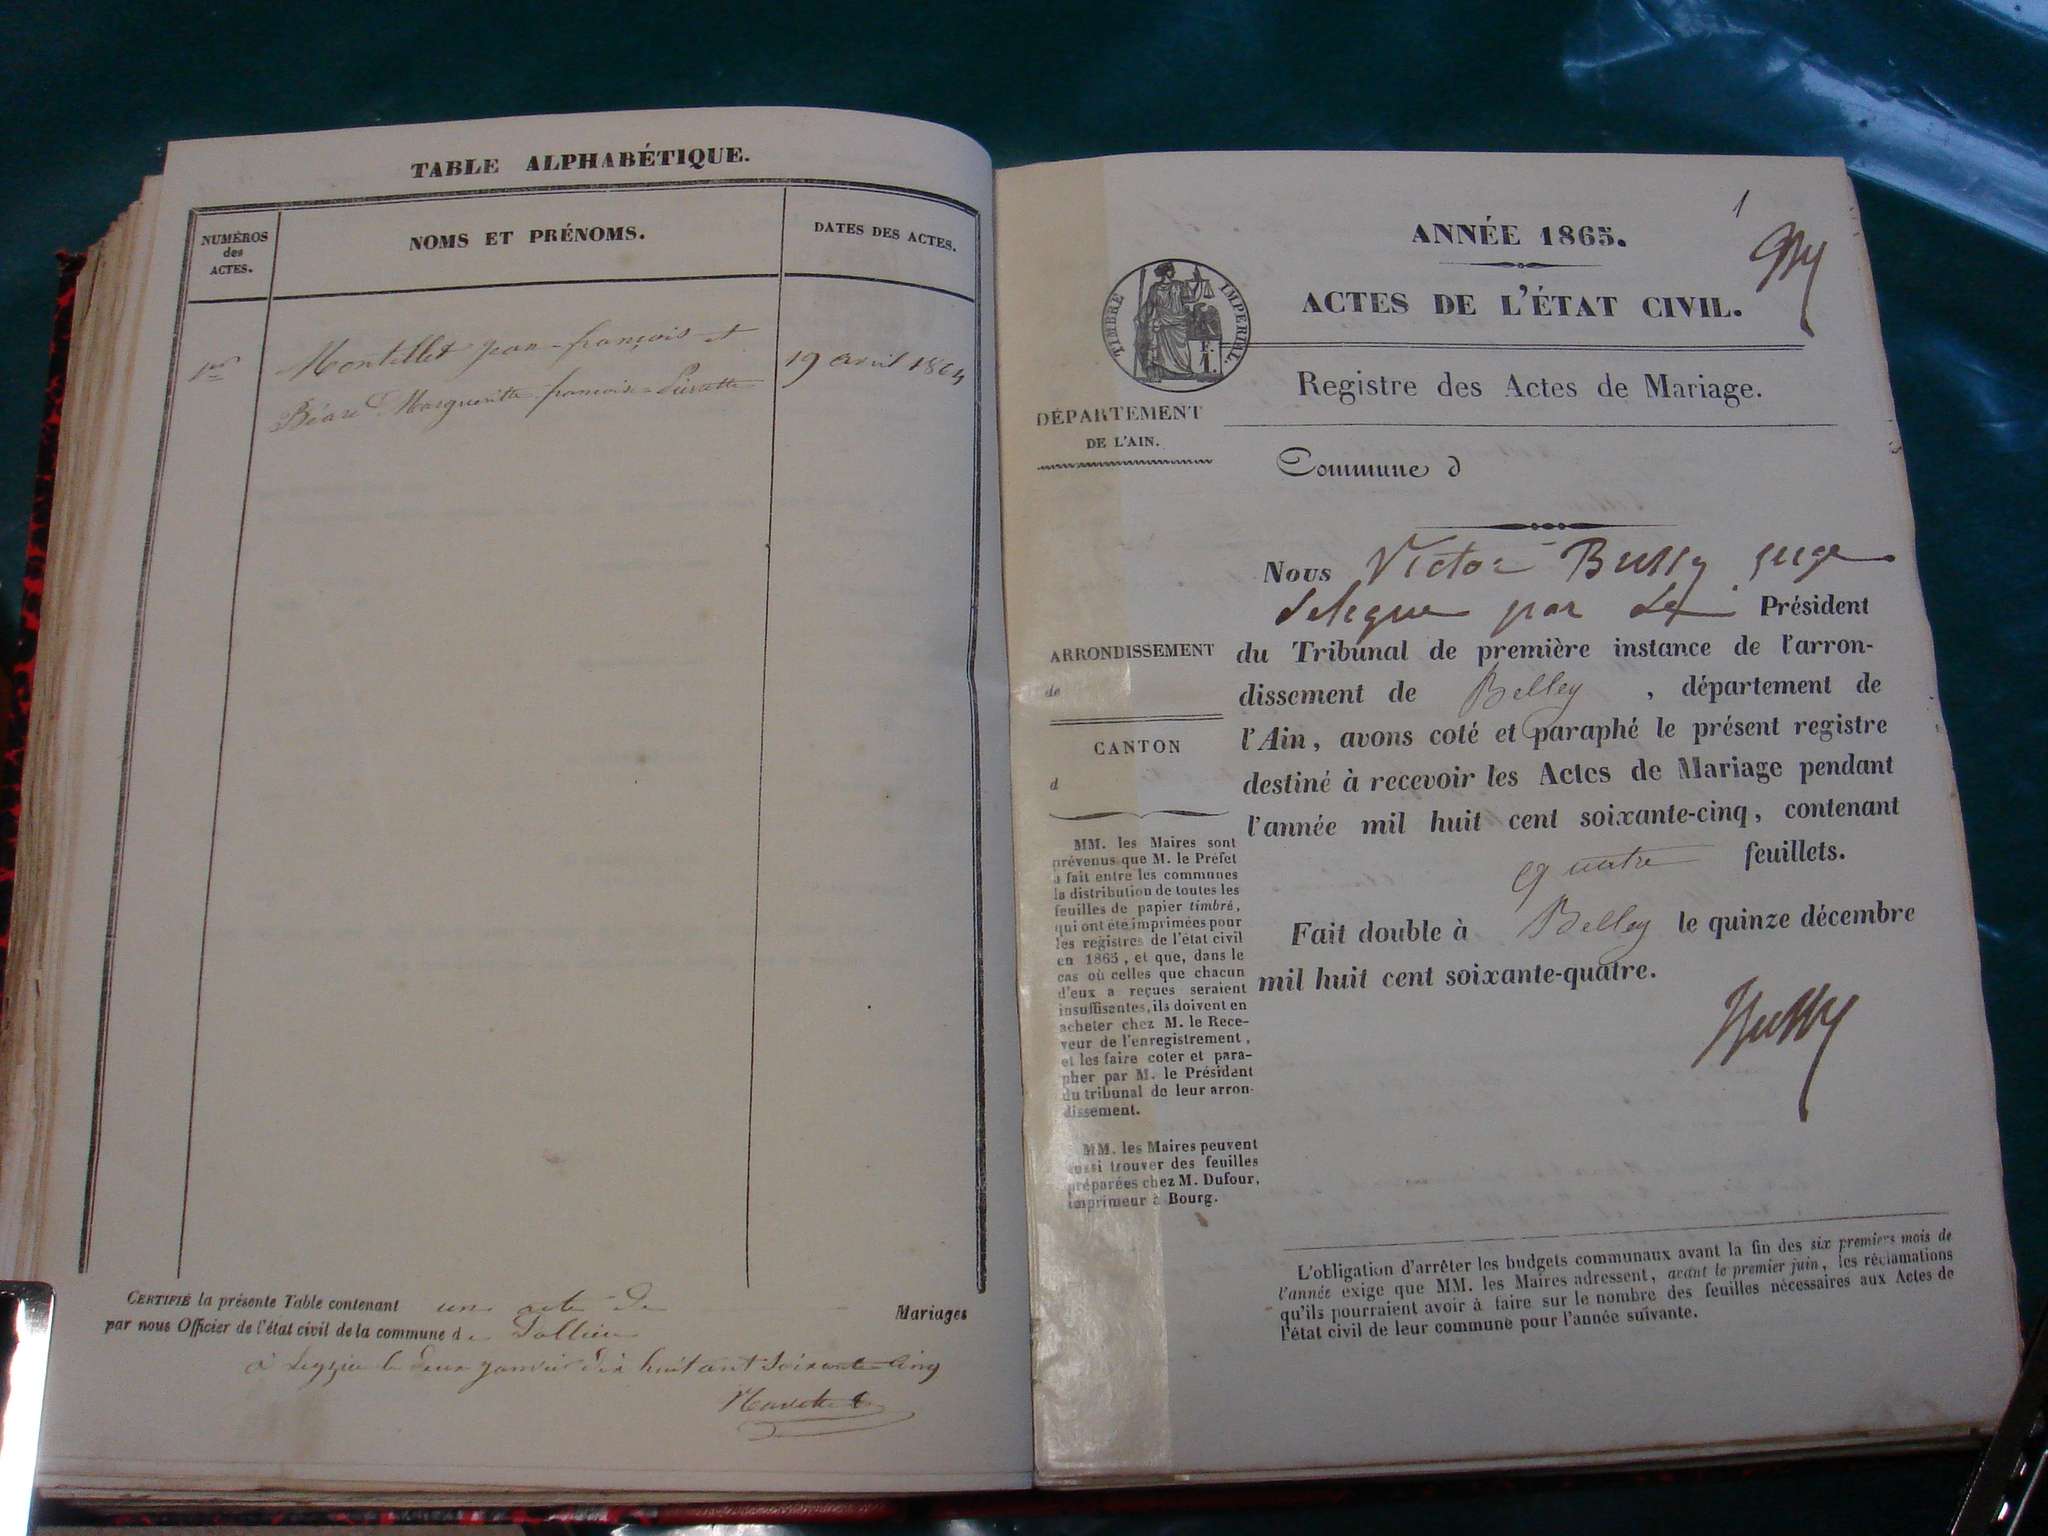 TABLE ALPHABÉTIQUE.
NUMÉROS
des
ACTES.
NOMS ET PRÉNOMS.
DATES DES ACTES.
Montillet jean-françois et
19 avril 1864
Béard Marguerite françoise Pierrette
CERTIFIÉ la présente Table contenant un acte de Mariages
par nous Officier de l'état civil de la commune de Pollieu
à le deux janvier dix huit cent soixante cinq
1
ANNÉE 1865.
ACTES DE L'ÉTAT CIVIL.
TIMBRE IMPERIAL.
F.
1.
Registre des Actes de Mariage.
DÉPARTEMENT
DE L'AIN.
Commune d
Nous Victor Bussy juge
delegue par le Président
ARRONDISSEMENT
de
du Tribunal de première instance de l'arron-
dissement de Belley, département de
CANTON
d
l'Ain, avons coté et paraphé le présent registre
destiné à recevoir les Actes de Mariage pendant
l'année mil huit cent soixante-cinq, contenant
quatre feuillets.
Fait double à Belley le quinze décembre
mil huit cent soixante-quatre.
Bussy
MM. les Maires sont
prévenus que M. le Préfet
a fait entre les communes
la distribution de toutes les
feuilles de papier timbré,
qui ont été imprimées pour
les registres de l'état civil
en 1865, et que, dans le
cas où celles que chacun
d'eux a reçues seraient
insuffisantes, ils doivent en
acheter chez M. le Rece-
veur de l'enregistrement,
et les faire coter et para-
pher par M. le Président
du tribunal de leur arron-
dissement.
MM. les Maires peuvent
aussi trouver des feuilles
préparées chez M. Dufour,
imprimeur à Bourg.
L'obligation d'arrêter les budgets communaux avant la fin des six premiers mois de
l'année exige que MM. les Maires adressent, avant le premier juin, les réclamations
qu'ils pourraient avoir à faire sur le nombre des feuilles nécessaires aux Actes de
l'état civil de leur commune pour l'année suivante.